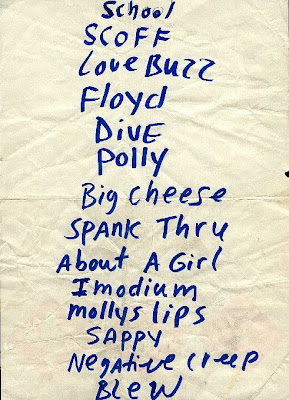 School
SCOFF
Love Buzz
Floyd
DivE
Polly
Big cheese
SPANK Thru
About A Girl
Imodium
mollys lips
SAPPY
Negative creep
BLEW